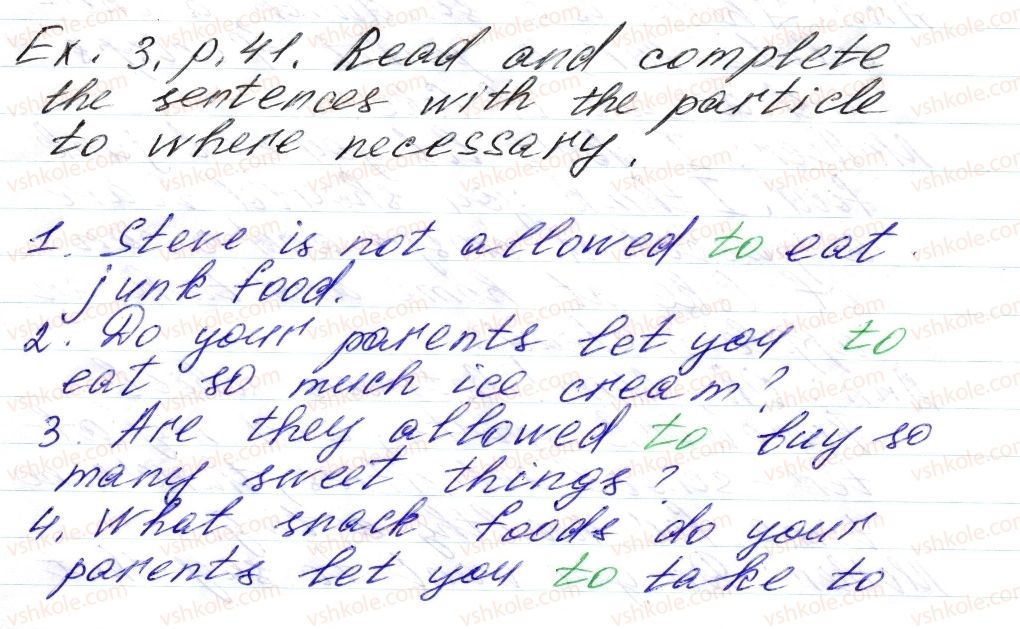 Ex. 3, p. 41. Read and complete
the sentences with the particle
to where necessary.
1. Steve is not allowed to eat
junk food.
2. Do your parents let you to
eat so much ice cream?
3. Are they allowed to buy so
many sweet things?
4. What snack foods do your
parents let you to take to